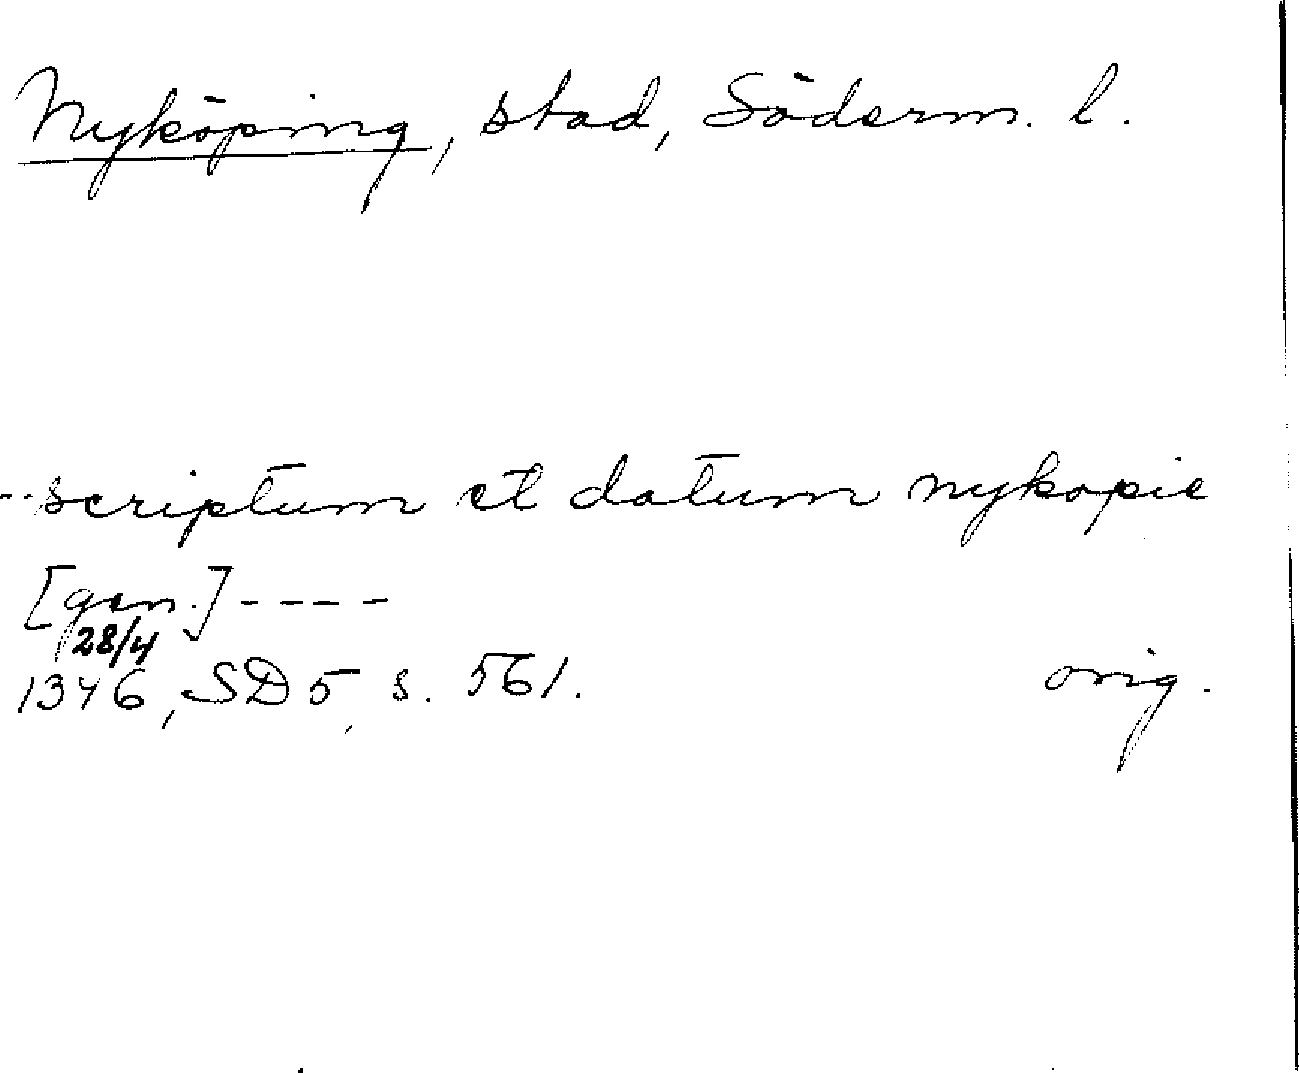 Nyköping, stad, Söderm. l.
--scriptum et datum nykopie
[gen.]----
28/4
1346, SD 5, s. 561. orig.